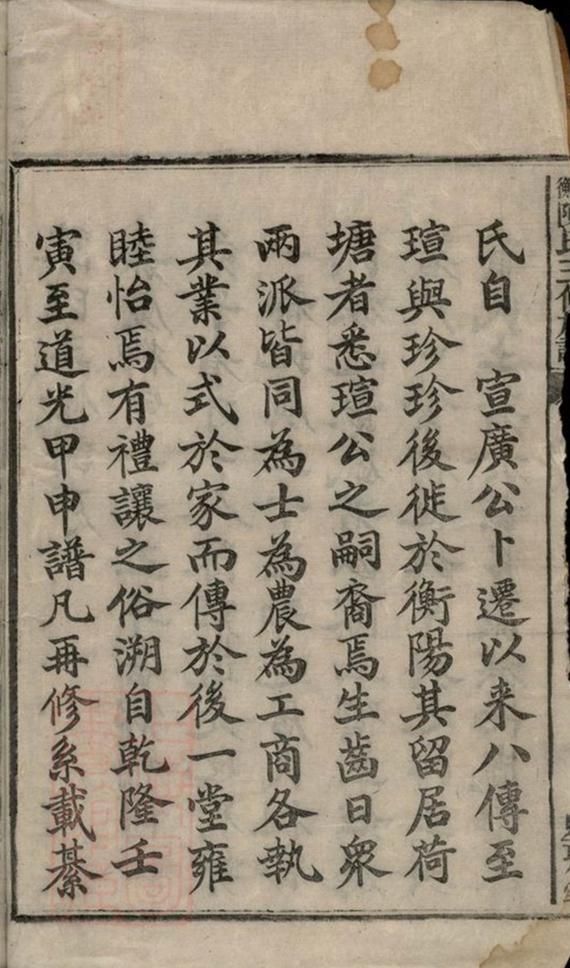 氏自　宣廣公卜遷以来八傳至
瑄與珍珍後徙於衡陽其留居荷
塘者悉瑄公之嗣裔焉生齒日衆
兩派皆同為士為農為工商各執
其業以式於家而傳於後一堂雍
睦怡焉有禮讓之俗溯自乾隆壬
寅至道光甲申譜凡再修系載綦